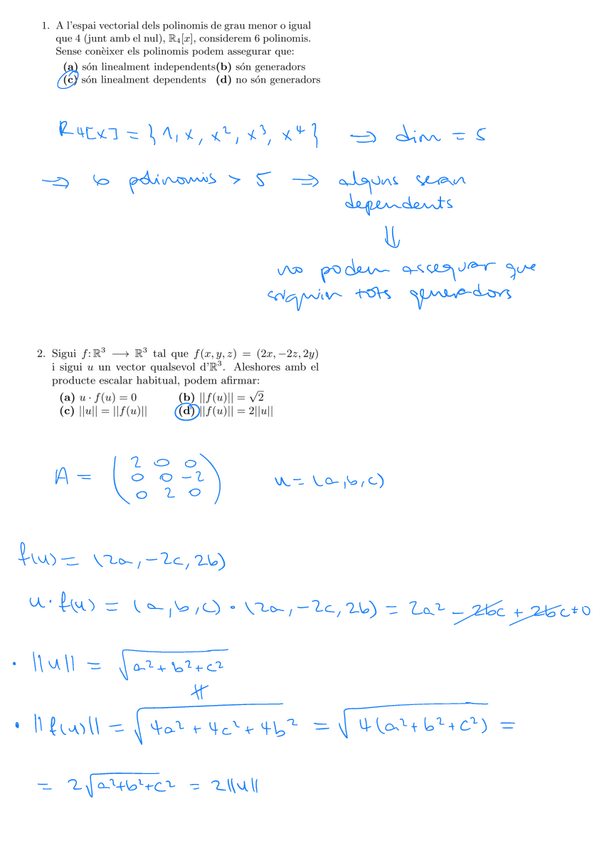 1. A l'espai vectorial dels polinomis de grau menor o igual
que 4 (junt amb el nul), ℝ₄[x], considerem 6 polinomis.
Sense conèixer els polinomis podem assegurar que:
(a) són linealment independents (b) són generadors
(c) són linealment dependents (d) no són generadors
R₄[x] = {1, x, x², x³, x⁴} ⇒ dim = 5
⇒ 6 polinomis > 5 ⇒ alguns seran
dependents
⇓
no podem assegurar que
siguin tots generadors
2. Sigui f: ℝ³ ⟶ ℝ³ tal que f(x, y, z) = (2x, −2z, 2y)
i sigui u un vector qualsevol d'ℝ³. Aleshores amb el
producte escalar habitual, podem afirmar:
(a) u · f(u) = 0 (b) ||f(u)|| = √2
(c) ||u|| = ||f(u)|| (d) ||f(u)|| = 2||u||
2 0 0
A = ( 0 0 −2 ) u = (a, b, c)
0 2 0
f(u) = (2a, −2c, 2b)
u · f(u) = (a, b, c) · (2a, −2c, 2b) = 2a² − 2bc + 2bc ≠ 0
· ||u|| = √(a² + b² + c²)
∦
· ||f(u)|| = √(4a² + 4c² + 4b²) = √(4(a² + b² + c²)) =
= 2√(a² + b² + c²) = 2||u||